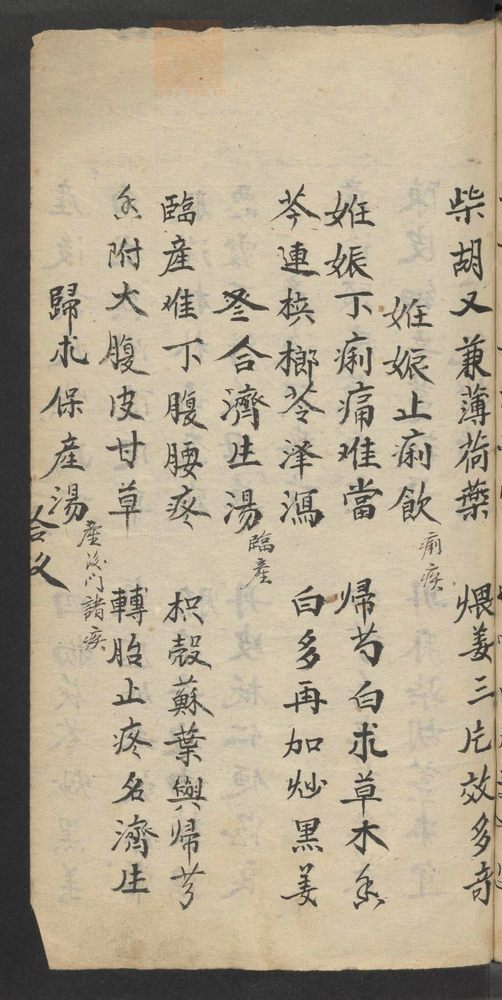 柴胡又兼薄荷葉 煨姜三片效多奇
姙娠止痢飲 痢疾
姙娠下痢痛难當 帰芍白朮草木香
芩連梹榔苓澤瀉 白多再加炒黒姜
叅合濟生湯 臨產
臨產难下腹腰疼 枳殼蘇葉與帰芎
香附大腹皮甘草 轉胎止疼名濟生
歸朮保產湯 產後門諸疾